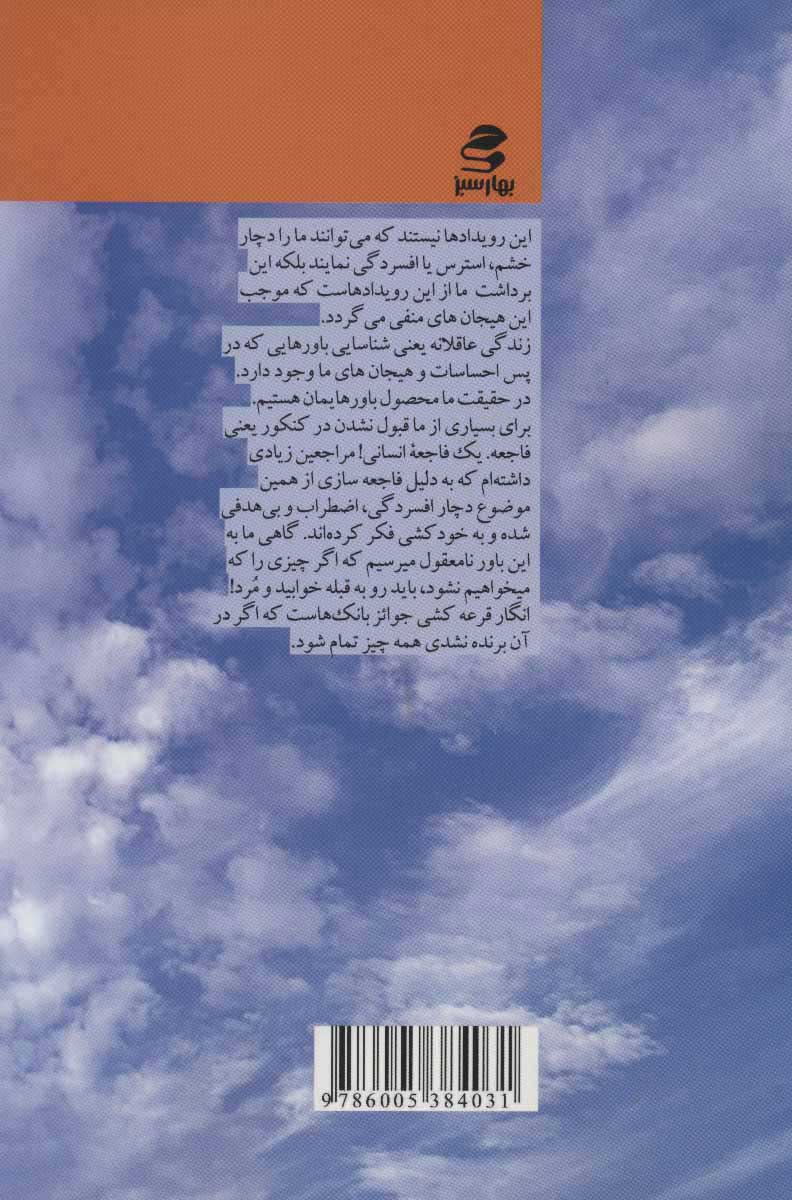 بهارسبز
این رویدادها نیستند که می‌توانند ما را دچار
خشم، استرس یا افسردگی نمایند بلکه این
برداشت ما از این رویدادهاست که موجب
این هیجان های منفی می گردد.
زندگی عاقلانه یعنی شناسایی باورهایی که در
پس احساسات و هیجان های ما وجود دارد.
در حقیقت ما محصول باورهایمان هستیم.
برای بسیاری از ما قبول نشدن در کنکور یعنی
فاجعه. یک فاجعهٔ انسانی! مراجعین زیادی
داشته‌ام که به دلیل فاجعه سازی از همین
موضوع دچار افسردگی، اضطراب و بی‌هدفی
شده و به خودکشی فکر کرده‌اند. گاهی ما به
این باور نامعقول میرسیم که اگر چیزی را که
میخواهیم نشود، باید رو به قبله خوابید و مُرد!
انگار قرعه کشی جوائز بانک‌هاست که اگر در
آن برنده نشدی همه چیز تمام شود.
9 786005 384031